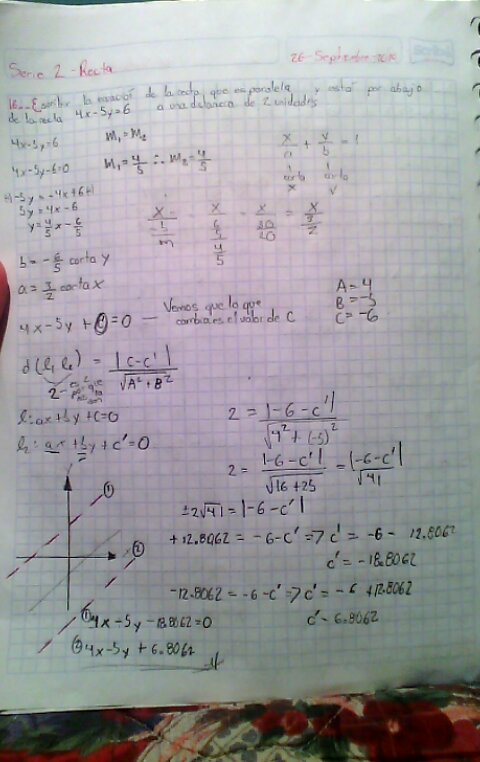 Serie 2 - Recta
26 - Septiembre -
16.- Escribir la ecuación de la recta que es paralela y está por abajo
de la recta 4x-5y=6 a una distancia de 2 unidades
4x-5y=6
m₁=m₂
4x-5y-6=0
m₁=4/5 ∴ m₂=4/5
x/a + y/b = 1
corta x
corta y
-5y=-4x+6
5y=4x-6
y=4/5x-6/5
b=-6/5 corta y
a=3/2 corta x
4x-5y+C=0 — Vemos que lo que
cambia es el valor de C
A=4
B=-5
C=-6
d(l₁ l₂) = |C-C'|/√(A²+B²)
l₁: ax+by+c=0
l₂: ax+by+c'=0
2 = |-6-c'|/√(4²+(-5)²)
2 = |-6-c'|/√(16+25) = |-6-c'|/√41
±2√41=|-6-c'|
+12.8062=-6-c' => c'=-6-12.8062
c'=-18.8062
-12.8062=-6-c' => c'=-6+12.8062
c'=6.8062
① 4x-5y-18.8062=0
② 4x-5y+6.8062
①
②